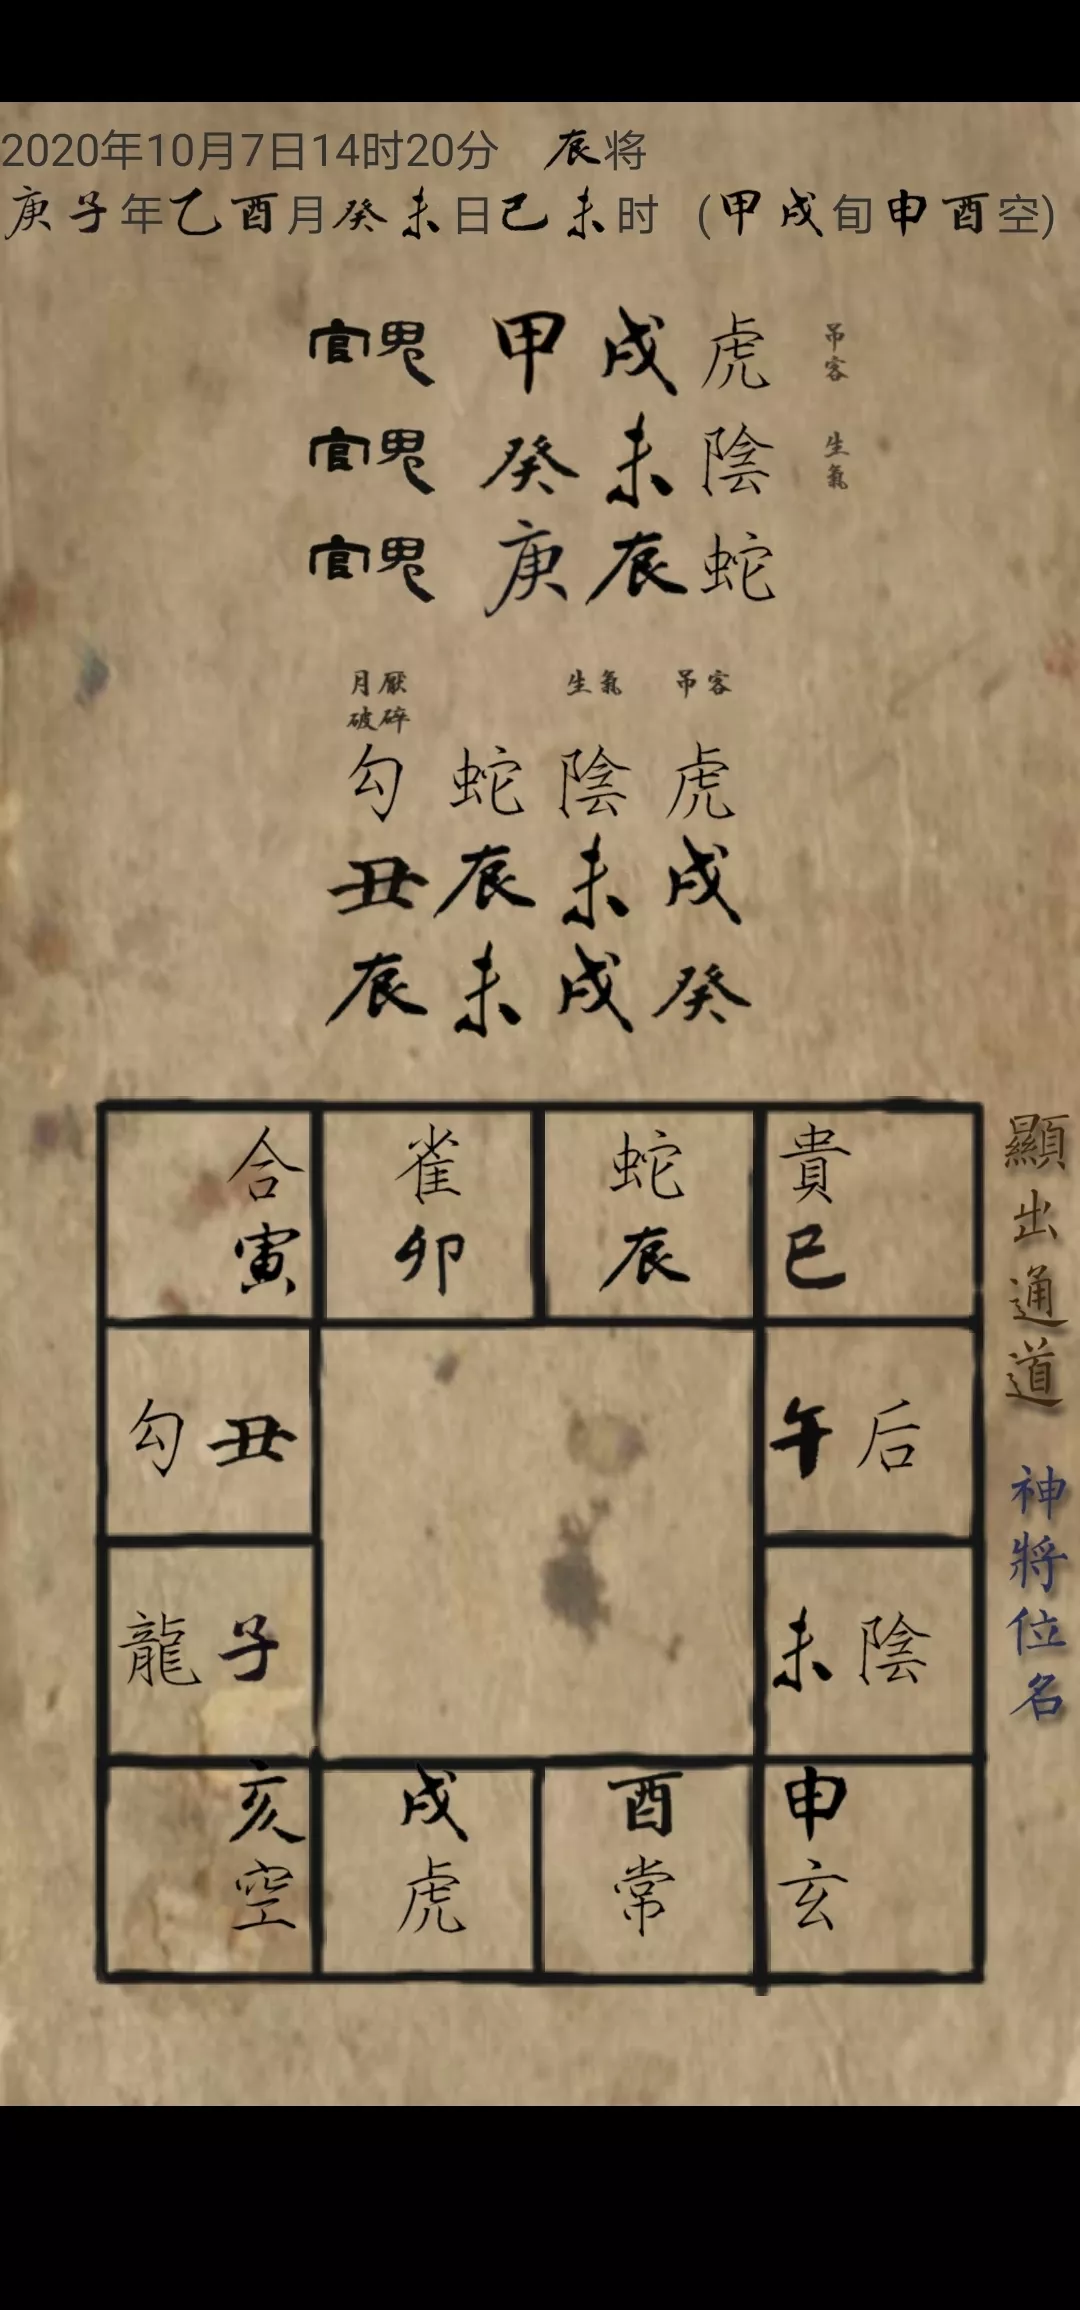 2020年10月7日14时20分 辰将
庚子年乙酉月癸未日己未时 (甲戌旬申酉空)
官鬼 甲戌虎 吊客
官鬼 癸未陰 生氣
官鬼 庚辰蛇
月厭 生氣 吊客
破碎
勾蛇陰虎
丑辰未戌
辰未戌癸
合雀蛇貴
寅卯辰巳
勾丑 午后
龍子 未陰
亥戌酉申
空虎常玄
顯出通道
神將位名